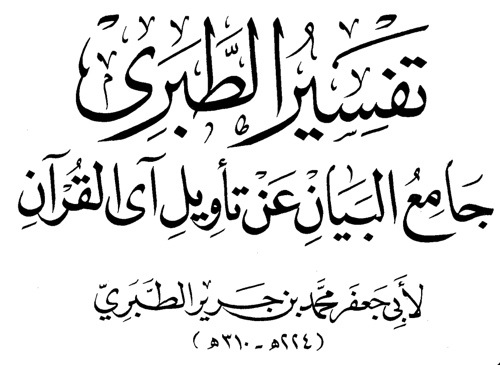 تَفسِيرُ الطَّبَرِي
جَامِعُ البَيَانِ عَنْ تَأوِيلِ آىِ القُرْآنِ
لأَبِي جَعفَر محمَّد بن جَرير الطَّبَرِيّ
(٢٢٤ﻫ - ٣١٠ﻫ)